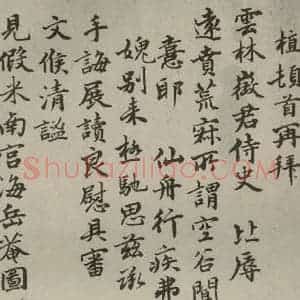 植頓首再拜
雲林徵君侍史 比辱
遠賁荒寂所謂空谷聞
憙耶 仙舟行疾弗
媿別來極馳思茲承
手誨展讀良慰具審
文候清謐
見假米南宮海岳菴圖
Shufaziliao.com